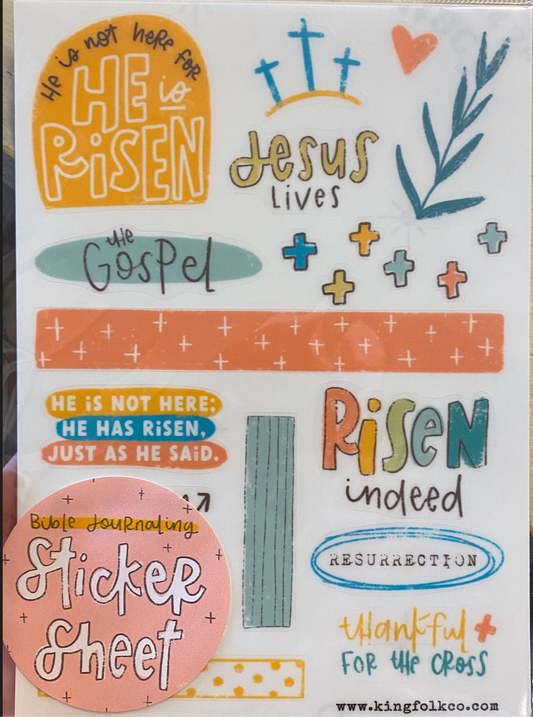 He is not here for
HE is
RiSEN
Jesus
Lives
the
Gospel
HE iS NOT HERE;
HE HAS RiSEN,
JUST AS HE SAiD.
RiSeN
indeed
Bible Journaling
Sticker
Sheet
RESURRECTION
thankful
FOR the CROSS
www.kingfolkco.com